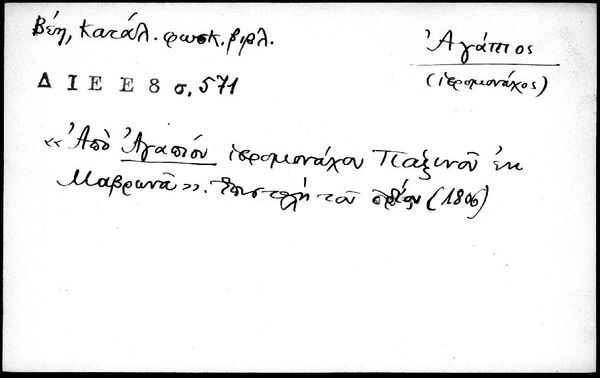 Βέη, Κατάλ. φωσκ. βιβλ.
Ἀγάπιος
(ἱερομονάχος)
Δ Ι Ε Ε 8 σ. 571
«Ἀπὸ Ἀγαπίου ἱερομονάχου Παξινοῦ ἐκ
Μαβρωνᾶ». Ἐπιστολὴ τοῦ (1806)